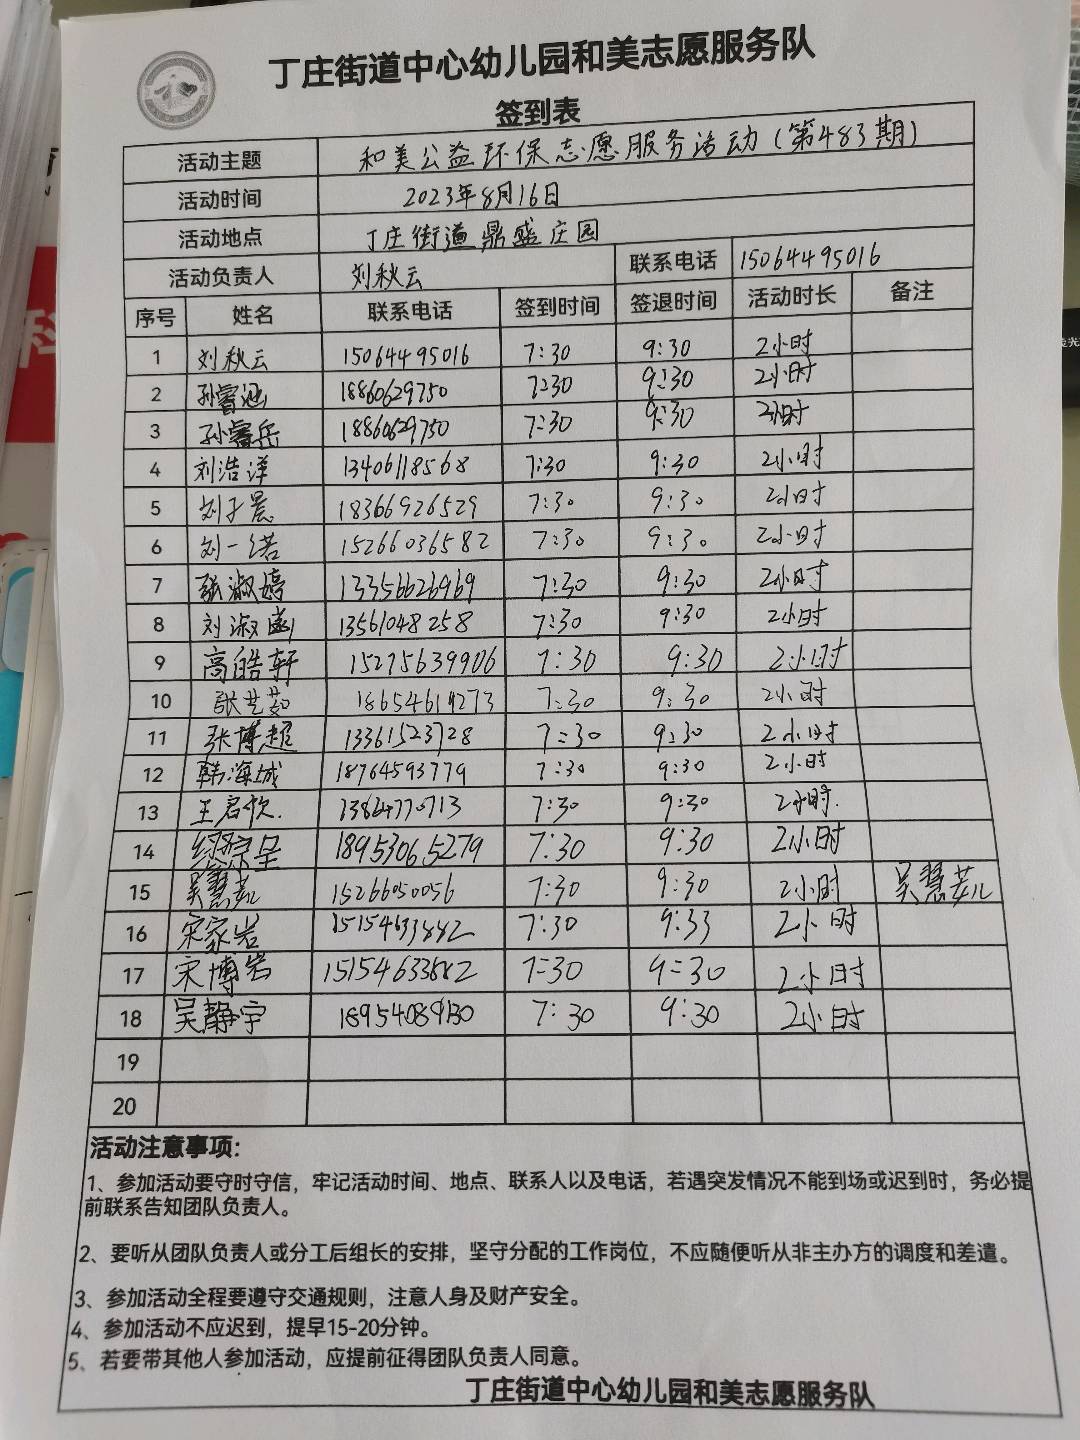 丁庄街道中心幼儿园和美志愿服务队
签到表
活动主题 和美公益环保志愿服务活动(第483期)
活动时间 2023年8月16日
活动地点 丁庄街道鼎盛庄园
活动负责人 刘秋云 联系电话 15064495016
序号 姓名 联系电话 签到时间 签退时间 活动时长 备注
1 刘秋云 15064495016 7:30 9:30 2小时
2 孙睿涵 18860629750 7:30 9:30 2小时
3 孙睿岳 18860629750 7:30 9:30 2小时
4 刘浩洋 13406118568 7:30 9:30 2小时
5 刘子晨 18366926529 7:30 9:30 2小时
6 刘一诺 15266036582 7:30 9:30 2小时
7 张淑婷 13356626969 7:30 9:30 2小时
8 刘淑 13561048258 7:30 9:30 2小时
9 高皓轩 15275639906 7:30 9:30 2小时
10 张艺茹 7:30 9:30 2小时
11 张博超 13361523728 7:30 9:30 2小时
12 韩海城 18764593779 7:30 9:30 2小时
13 王君欣 7:30 9:30 2小时
14 18953065279 7:30 9:30 2小时
15 吴慧茹 15266050056 7:30 9:30 2小时 吴慧茹
16 宋家岩 15154633882 7:30 9:33 2小时
17 宋博岩 15154633882 7:30 9:30 2小时
18 吴静宇 7:30 9:30 2小时
19
20
活动注意事项:
1、参加活动要守时守信，牢记活动时间、地点、联系人以及电话，若遇突发情况不能到场或迟到时，务必提
前联系告知团队负责人。
2、要听从团队负责人或分工后组长的安排，坚守分配的工作岗位，不应随便听从非主办方的调度和差遣。
3、参加活动全程要遵守交通规则，注意人身及财产安全。
4、参加活动不应迟到，提早15-20分钟。
5、若要带其他人参加活动，应提前征得团队负责人同意。
丁庄街道中心幼儿园和美志愿服务队